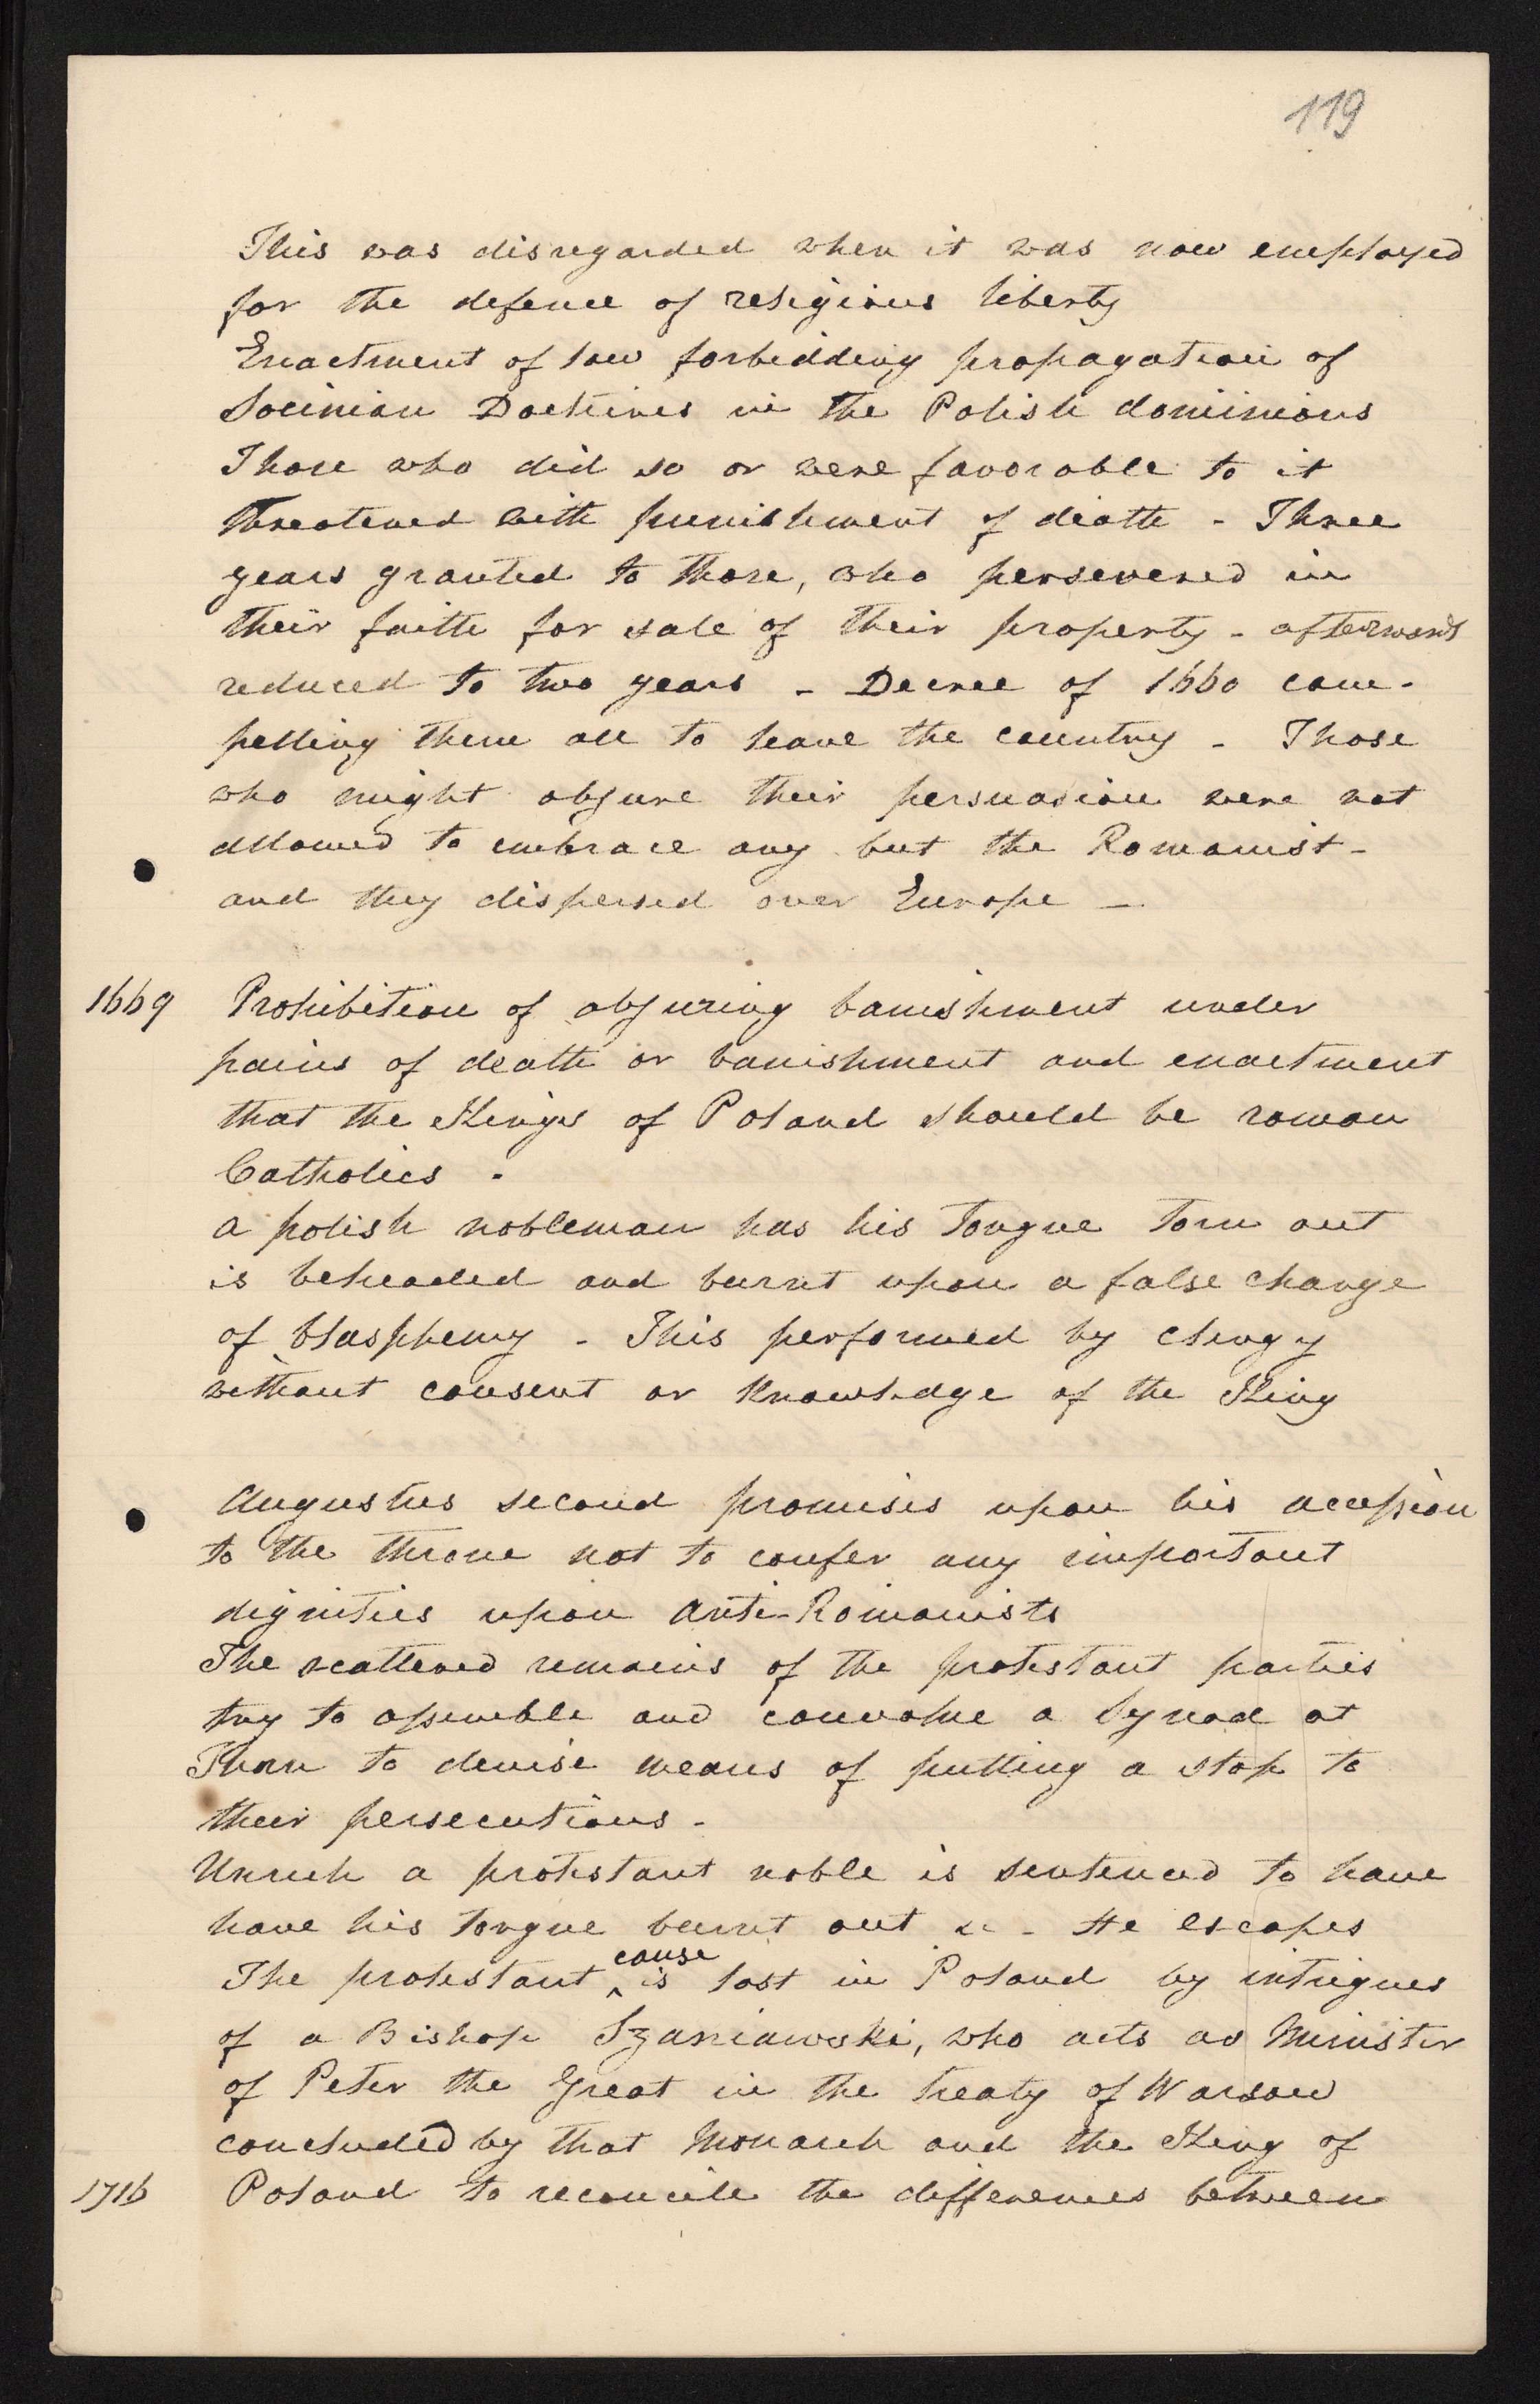 119
This was disregarded when it was now employed
for the defence of religious liberty
Enactment of law forbidding propagation of
Socinian Doctrines in the Polish dominions
Those who did so or were favorable to it
threatened with punishment of death - Three
years granted to those, who persevered in
their faith for sale of their property - afterwards
reduced to two years - Decree of 1660 com-
pelling them all to leave the country - Those
who might abjure their persuasion were not
allowed to embrace any but the Romanist -
and they dispersed over Europe -
1669 Prohibition of abjuring banishment under
pains of death or banishment and enactment
that the Kings of Poland should be roman
Catholics -
a polish nobleman has his tongue torn out
is beheaded and burnt upon a false charge
of blasphemy - This performed by clergy
without consent or knowledge of the King
Augustus second promises upon his accession
to the throne not to confer any important
dignities upon Anti-Romanists
The scattered remains of the protestant parties
try to assemble and convoke a Synod at
Thorn to devise means of putting a stop to
their persecutions -
Unruh a protestant noble is sentenced to have
have his tongue burnt out &c - He escapes
The protestant ^ cause is lost in Poland by intrigues
of a Bishop Szaniawski, who acts as Minister
of Peter the Great in the treaty of Warsaw
concluded by that Monarch and the King of
1716 Poland to reconcile the differences between